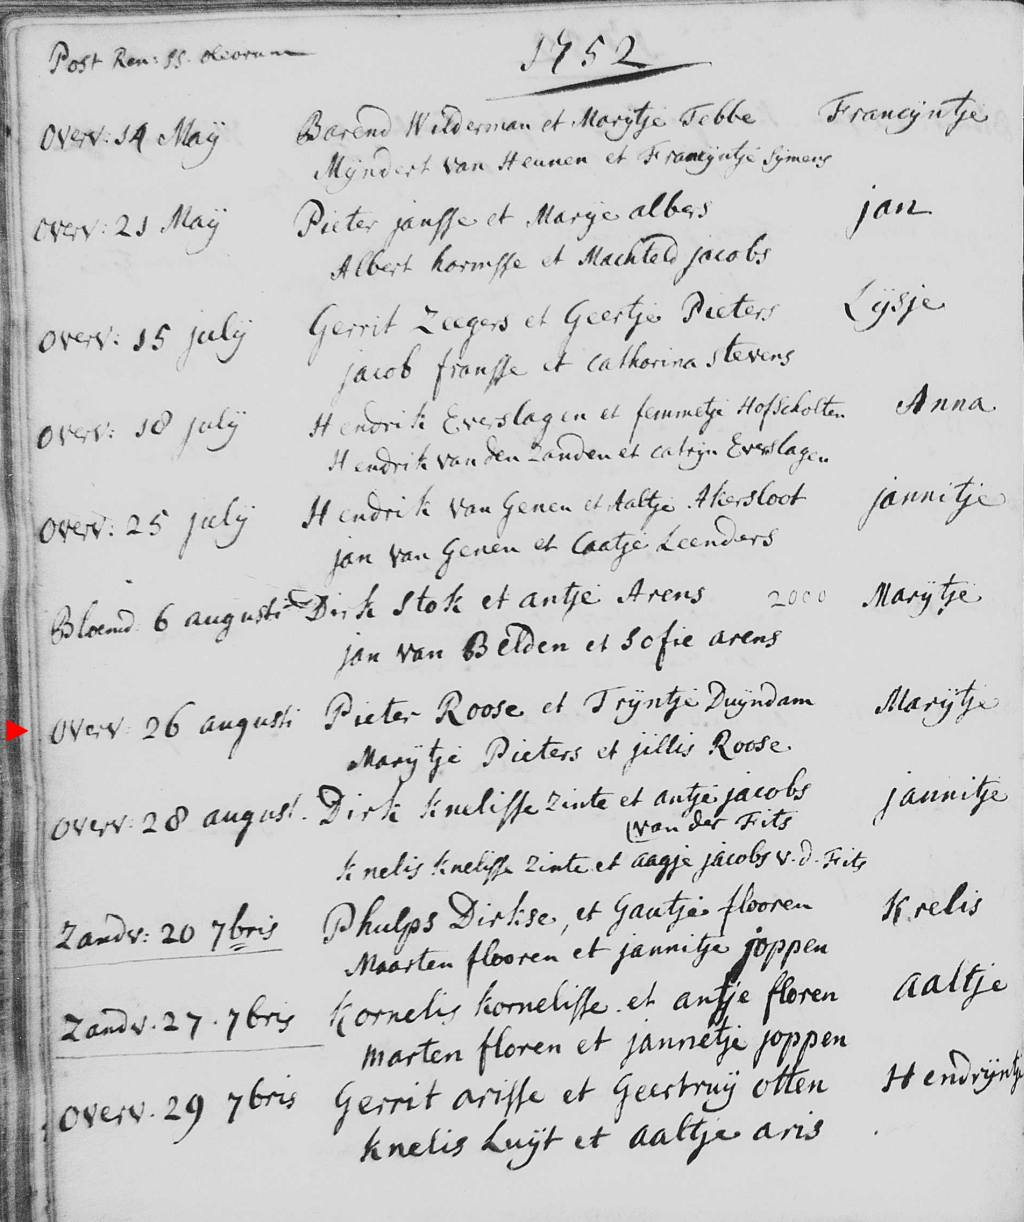 Post Ren: SS. oleorum 1752
Overv: 14 Maÿ Barend Wilderman et Marÿtje Tebbe Francÿntje
Mÿndert van Hennen et Francÿntje Sÿmens
Overv: 21 Maÿ Pieter jansse et Marÿe albers jan
Albert harmsse et Machteld jacobs
Overv: 15 julÿ Gerrit Zeegers et Geertje Pieters Lÿsje
jacob fransse et Catharina Stevens
Overv: 18 julÿ Hendrik Everslagen et femmetje Hofscholten Anna
Hendrik van den Zanden et catrÿn Everslagen
Overv: 25 julÿ Hendrik van Genen et Aaltje Akersloot jannitje
jan van Genen et Caatje Leenders
Bloemd. 6 augusti Dirk Stok et antje Arens 2000 Marÿtje
jan van Belden et Sofie arens
Overv: 26 augusti Pieter Roose et Trÿntje Duÿndam Marÿtje
Marÿtje Pieters et jillis Roose
Overv: 28 august. Dirk Knelisse Zinte et antje jacobs jannitje
van der Fits
Knelis Knelisse Zinte et aagje jacobs v. d. Fits
Zandv: 20 7bris Phulps Dirkse, et Gautje flooren Krelis
Maarten flooren et jannitje joppen
Zandv. 27. 7bris Kornelis Kornelisse et antje floren aaltje
Marten floren et jannetje joppen
Overv. 29 7bris Gerrit arisse et Geertruÿ otten Hendrÿntje
Knelis Luÿt et aaltje aris